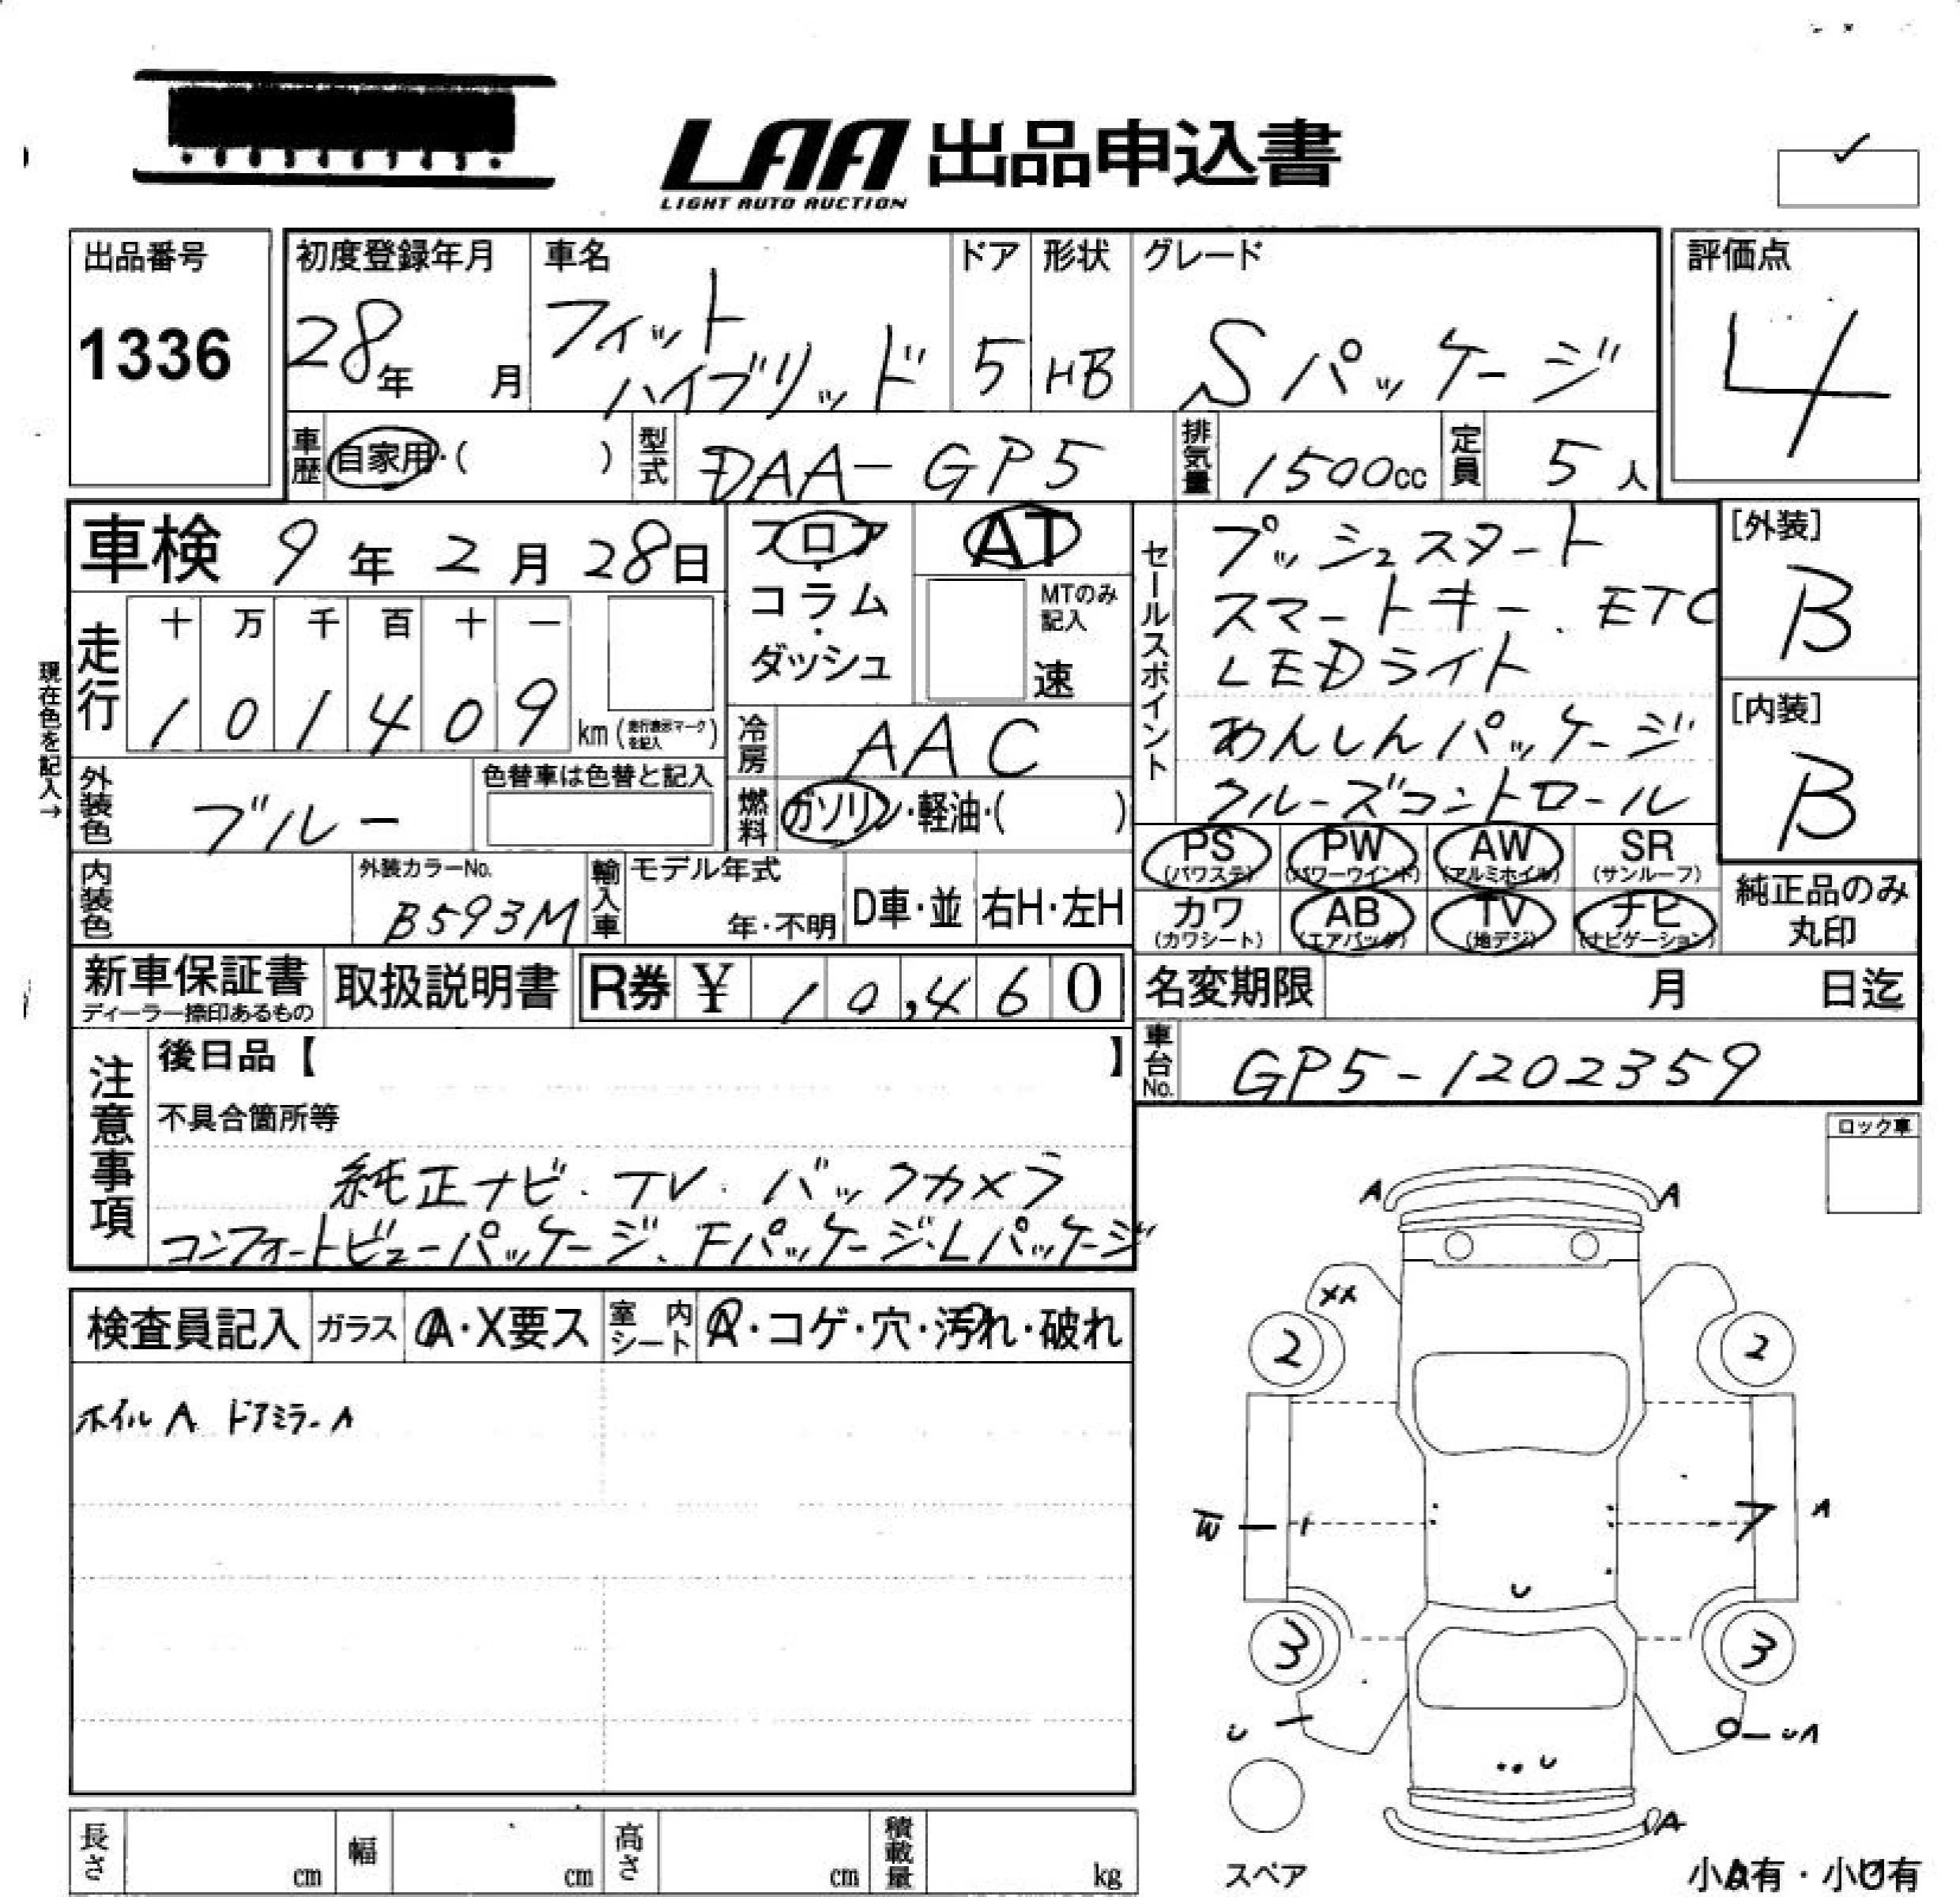 LAA 出品申込書
LIGHT AUTO AUCTION
出品番号
1336
初度登録年月
28年 月
車名
フィット
ハイブリッド
ドア
5
形状
HB
グレード
Sパッケージ
評価点
4
車歴 自家用・( )
型式 DAA-GP5
排気量 1500cc
定員 5人
車検 9年2月28日
フロア・コラム・ダッシュ
AT
MTのみ記入
速
現在色を記入→
走行 十 万 千 百 十 一
101409 km (走行表示マークを記入)
冷房 AAC
外装色 ブルー
色替車は色替と記入
燃料 ガソリン・軽油・( )
セールスポイント
プッシュスタート
スマートキー. ETC
LEDライト
あんしんパッケージ
クルーズコントロール
[外装]
B
[内装]
B
PS (パワステ) PW (パワーウインド) AW (アルミホイル) SR (サンルーフ)
カワ (カワシート) AB (エアバッグ) TV (地デジ) ナビ (ナビゲーション)
純正品のみ
丸印
内装色
外装カラーNo.
B593M
輸入車
モデル年式
年・不明
D車・並
右H・左H
新車保証書
ディーラー捺印あるもの
取扱説明書
R券 ¥ 10,460
名変期限 月 日迄
車台No. GP5-1202359
注意事項
後日品【 】
不具合箇所等
純正ナビ. TV. バックカメラ
コンフォートビューパッケージ. Fパッケージ.Lパッケージ
ロック車
検査員記入 ガラス A・X要ス 室内シート A・コゲ・穴・汚れ・破れ
ホイルA ドアミラーA
A A
XX
2 2
W A
U
3 3
U UA
U
A
スペア
小A有・小U有
長さ cm 幅 cm 高さ cm 積載量 kg